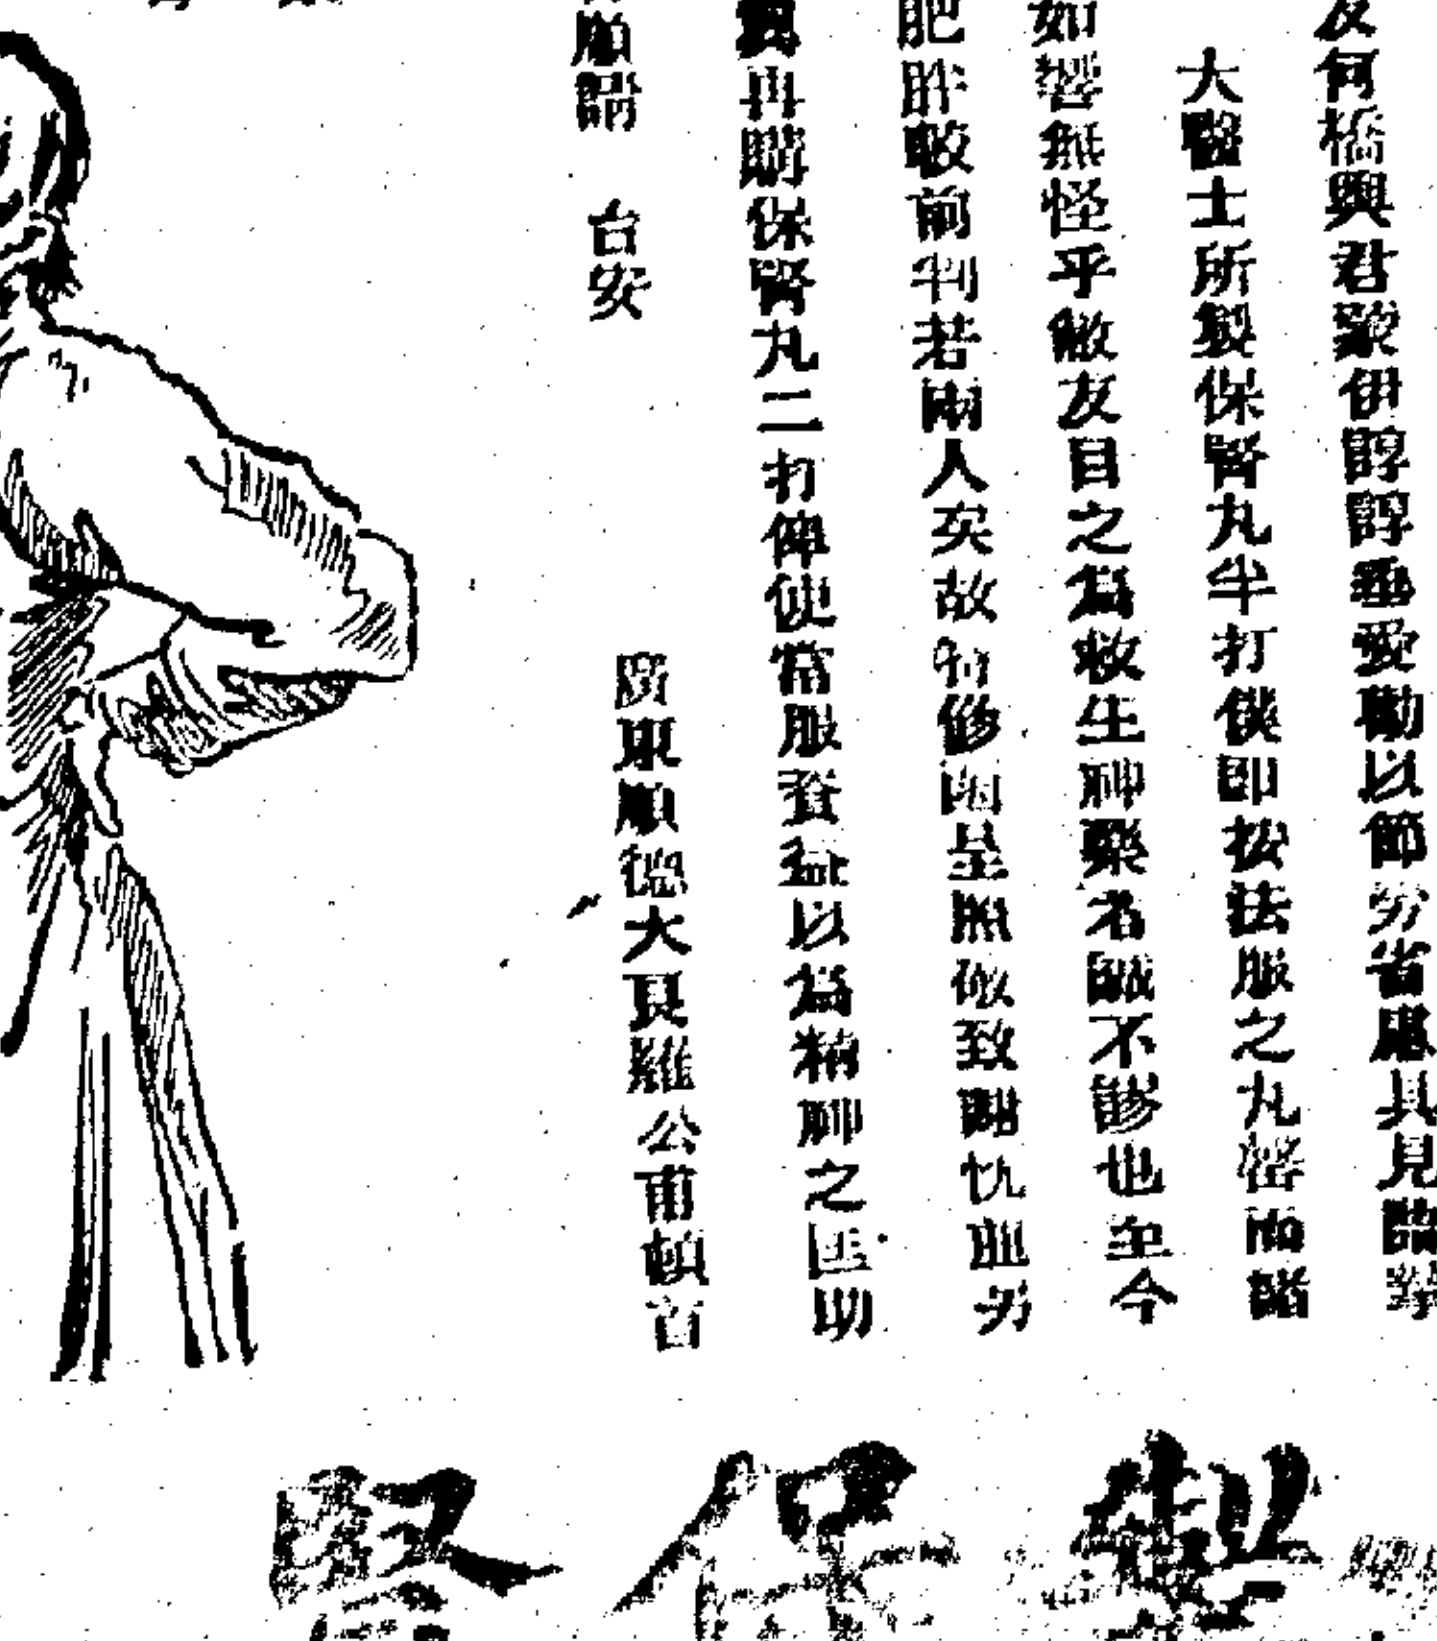 友何橋與君蒙伊諄諄垂愛勸以節勞省慮具見臨
大醫士所製保腎丸半打僕即按法服之丸罄而諸
如響無怪乎敝友目之為救生神藥者誠不謬也至今
肥胖較前判若兩人矣故特修函呈照做致謝忱並另
再購保腎丸二打俾使常服養益以為精神之匡助
順請 台安
廣東順德大良羅公甫頓首
製保腎